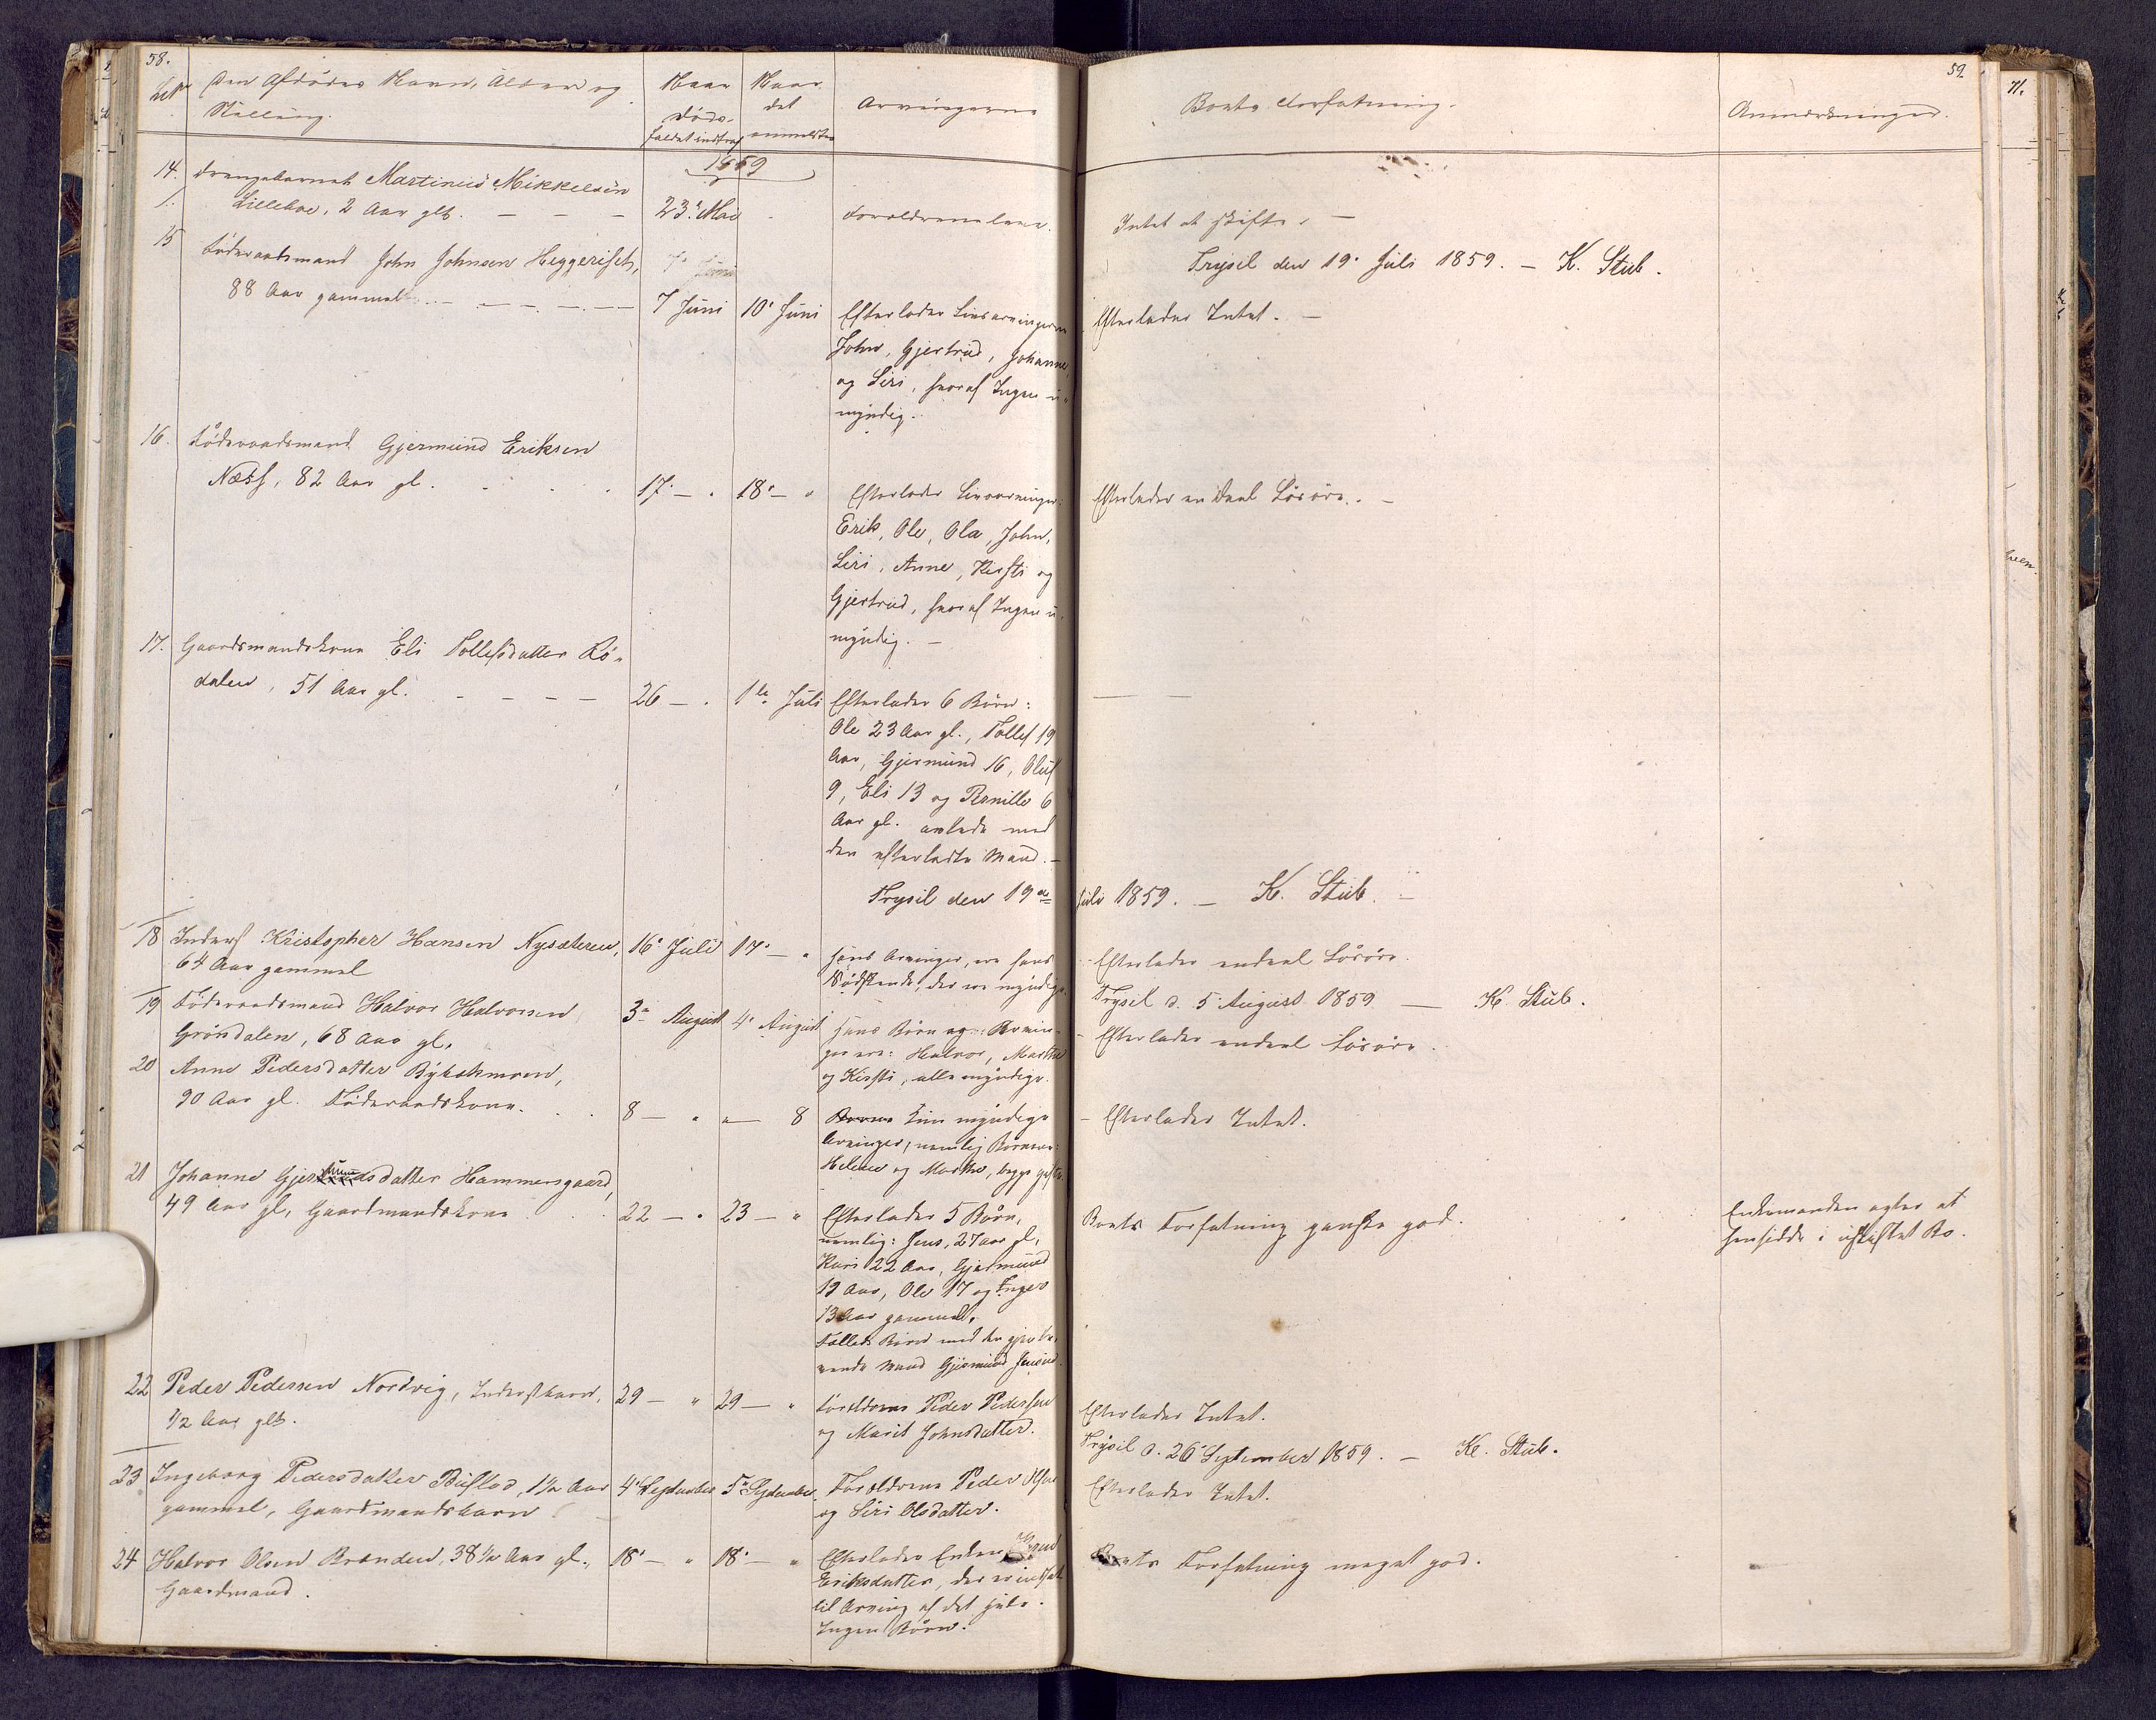 58.
Den Afdødes Navn, Alder og
Stilling.
Naar
døds-
faldet indtraf
Naar
det
anmeldtes
Arvingerne
1859
14. Drengebarnet Martinius Mikkelsen
Lilleboe, 2 Aar glt. — — — 23. Mai
Forældrene leve.
15 Føderaadsmand John Johnsen Heggerisch, 7. Juni
88 Aar gammel — — — — 7 Juni 10. Juni
Efterlader Livsarvingerne
John, Gjertrud, Johanne,
og Siri, hvoraf Ingen u-
myndig.
16. Føderaadsmand Gjermund Eriksen
Næss, 82 Aar gl. 17. — " 18. — "
Efterlader Livsarvinger:
Erik, Ole, Ola, John,
Siri, Anne, Kirsti og
Gjertrud, hvoraf Ingen u-
myndig. —
17. Gaardmandskone Eli Tollefsdatter Rö-
dalen, 51 Aar gl. — — — — 26 — " 1te Juli
Efterlader 6 Børn:
Ole 23 Aar gl., Tollef 19
Aar, Gjermund 16, Oluf
9, Eli 13 og Pernille 6
Aar gl. avlede med
den efterladte Mand. —
Trysil den 19de
18 Inderst Kristopher Hansen Nysæteren, 16. Juli 17. — "
64 Aar gammel
hans Arvinger, ere hans
Sødskende, der ere myndige.
19 Føderaadsmand Halvor Halvorsen 3. August 4. August
Grøndalen, 68 Aar gl.
hans Børn og Arvin-
ger ere: Halvor, Marthe
og Kirsti, alle myndige.
20 Anne Pedersdatter Bÿkskmoen,
90 Aar gl. Føderaadskone. 8 — " " — 8
myndige
Arvinger, nemlig Børnene
Helene og Marthe, begge gifte.
21 Johanne Gjermundsdatter Hammersgaard,
49 Aar gl, Gaardmandskone 22 — " 23 — "
Efterlader 5 Børn,
nemlig: Jens, 27 Aar gl,
Kari 22 Aar, Gjermund
19 Aar, Ole 17 og Inger
13 Aar gammel.
Fælleds Børn med den gjenle-
vende Mand Gjermund Jensen.
22 Peder Pedersen Nordvig, Inderstbarn, 29 — " 29 — "
1/2 Aar glt.
Forældrene Peder Pedersen
og Marit Johnsdatter.
23 Ingeborg Pedersdatter Bustad, 1 1/2 Aar 4. September 5. September
gammel, Gaardmandsbarn
Forældrene Peder Olsen
og Siri Olsdatter.
24 Halvor Olsen Brænden, 38 1/2 Aar gl., 18. — " 18. — "
Gaardmand.
Efterlader Enken
Eriksdatter, der er indsat
til Arving af det hele.
Ingen Børn.
59.
Boets Forfatning.
Anmærkninger.
Intet at skifte. —
Trysil den 19. Juli 1859. — K. Stub.
Efterlader Intet. —
Efterlader en Deel Løsøre. —
Juli 1859. — K. Stub. —
Efterlader endeel Løsøre.
Trysil d. 5 August 1859 — K. Stub.
- Efterlader endeel Løsøre.
- Efterlader Intet.
Boets Forfatning ganske god.
Enkemanden agter at
hensidde i uskiftet Bo.
Efterlader Intet.
Trysil d. 26 September 1859. — K. Stub.
Efterlader Intet.
Boets Forfatning meget god.
71.